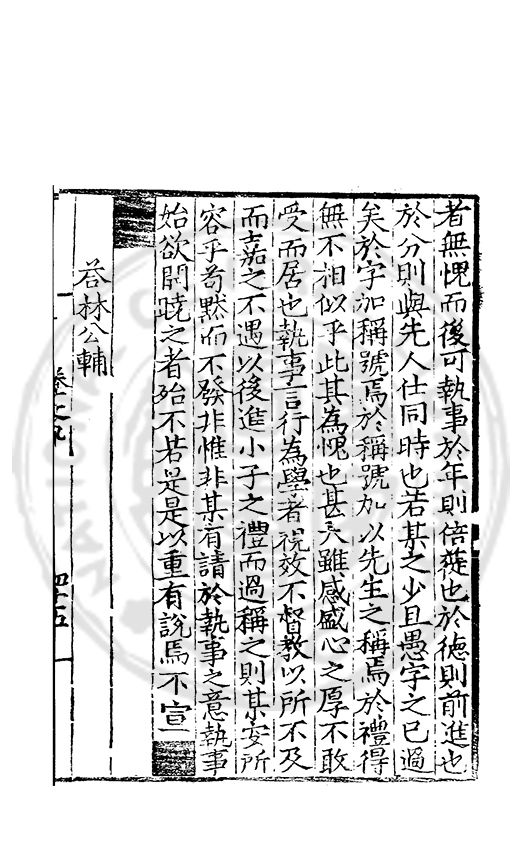 者無愧而後可執事於年則倍蓰也於德則前進也
於分則與先人仕同時也若某之少且愚字之已過
矣於字加稱號焉於稱號加以先生之稱焉於禮得
無不相似乎此其為愧也甚大雖感盛心之厚不敢
受而居也執事言行為學者視效不督教以所不及
而嘉之不遇以後進小子之禮而過稱之則某安所
容乎苟黙而不發非惟非某有請於執事之意執事
始欲開曉之者殆不若是是以重有說焉不宣
荅林公輔
卷之九
四十五